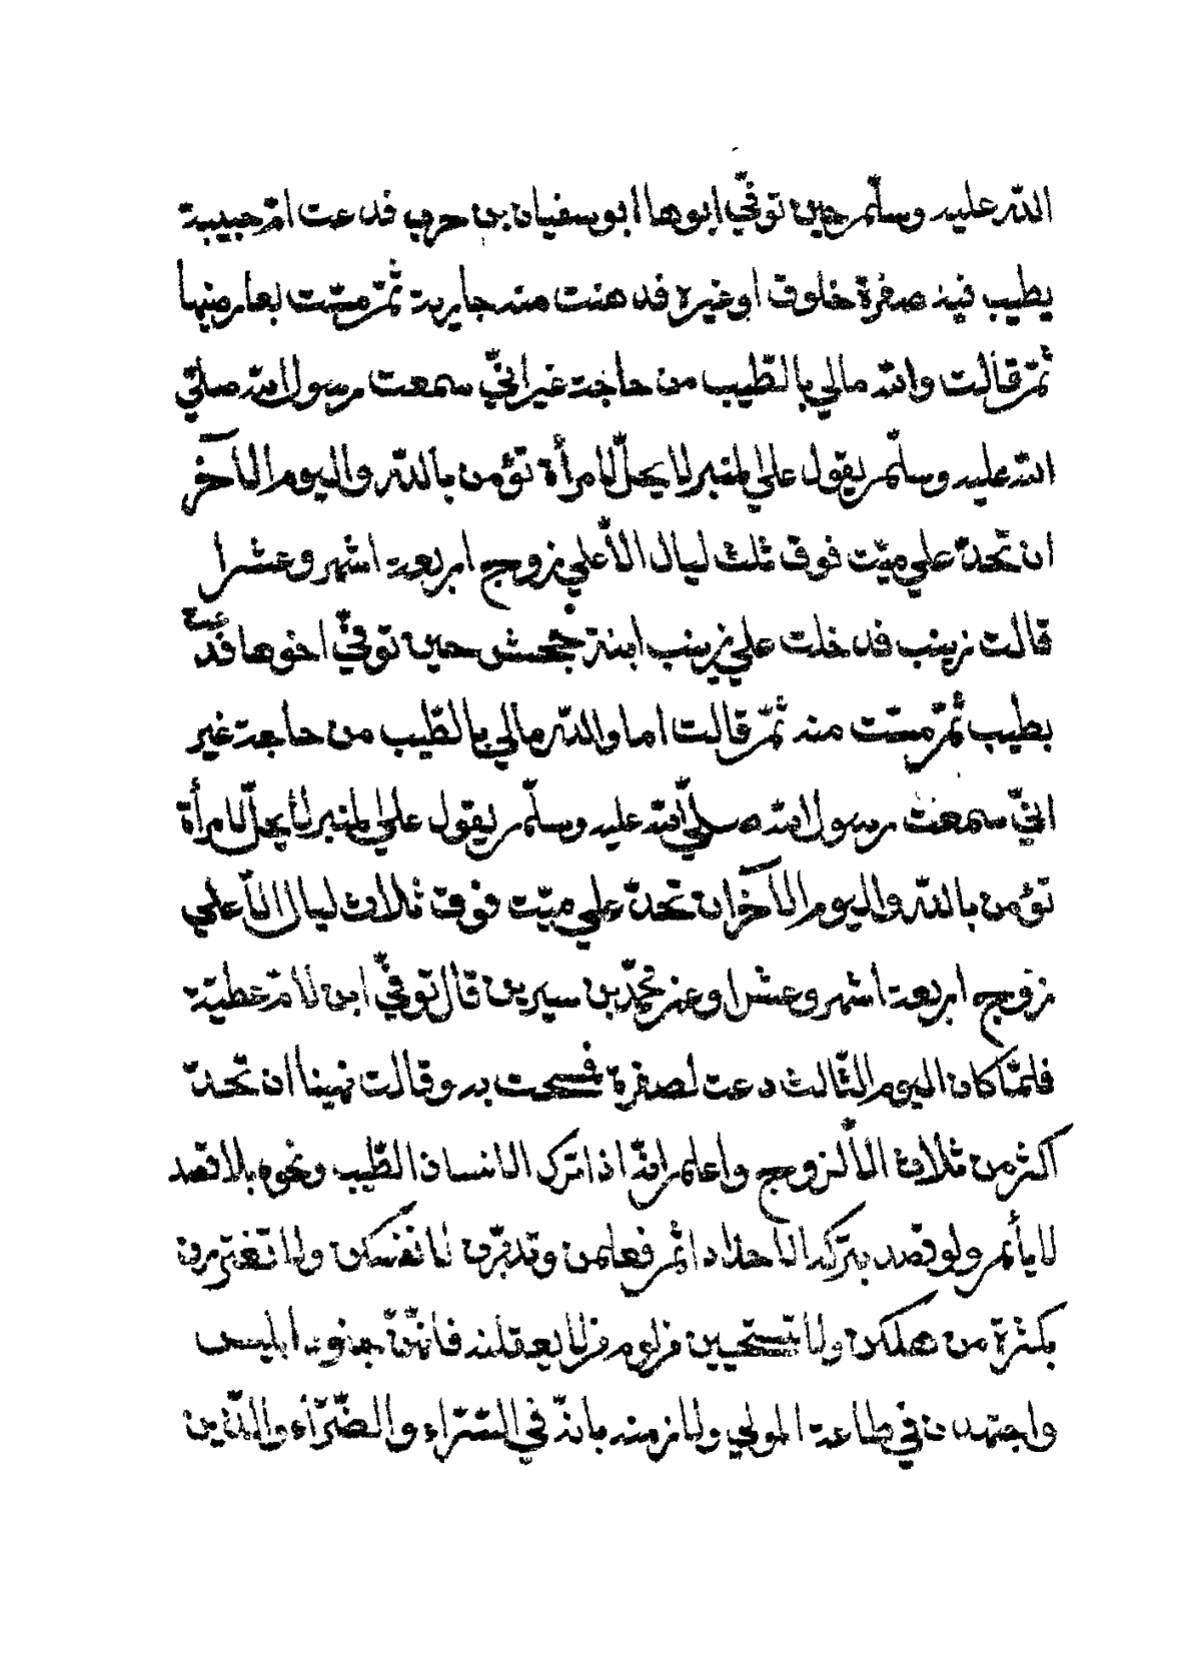 الله عليه وسلّم حين توفّي ابوها ابو سفيان بن حرب فدعت امّ حبيبة
بطيب فيه صفرة خلوق او غيره فدهنت منه جارية ثمّ مسّت بعارضيها
ثمّ قالت والله مالي بالطّيب من حاجة غير انّي سمعت رسول الله صلّي
الله عليه وسلّم يقول علي المنبر لا يحلّ لامرأة تؤمن بالله واليوم الآخر
ان تحدّ علي ميّت فوق ثلث ليال الّا علي زوج اربعة اشهر وعشرا
قالت زينب فدخلت علي زينب ابنة جحش حين توفّي اخوها فدعت
بطيب ثمّ مسّت منه ثمّ قالت اما والله مالي بالطّيب من حاجة غير
انّي سمعت رسول الله صلّي الله عليه وسلّم يقول علي المنبر لا يحلّ لامرأة
تؤمن بالله واليوم الآخر ان تحدّ علي ميّت فوق ثلاث ليال الّا علي
زوج اربعة اشهر وعشرا وعن محمّد بن سيرين قال توفّي ابن لامّ عطيّة
فلمّا كان اليوم الثّالث دعت لصفرة فمسحت به وقالت نهينا ان تحدّ
اكثر من ثلاث الّا لزوج واعلم انّه اذا ترك الانسان الطّيب ونحوه بلا قصد
لا يأثم ولو قصد بتركه الاحداد اثم فعلمن وتدبّرن لانفسكن ولا تغتررن
بكثرة من هلكن ولا تستحيين فلوم من لا يعقلنه فانّهنّ جنود ابليس
واجتهدن في طاعة المولي ولازمنه بانّه في السّرّاء والضّرّاء والّذين